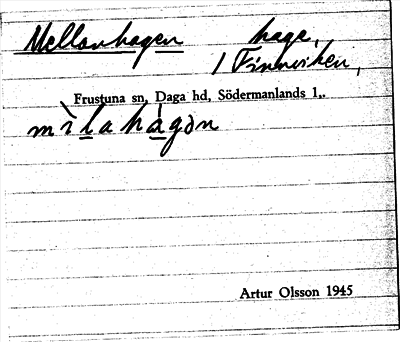 Mellanhagen hage,
i Finnviken,
Frustuna sn, Daga hd, Södermanlands l.,
mìlahágən
Artur Olsson 1945